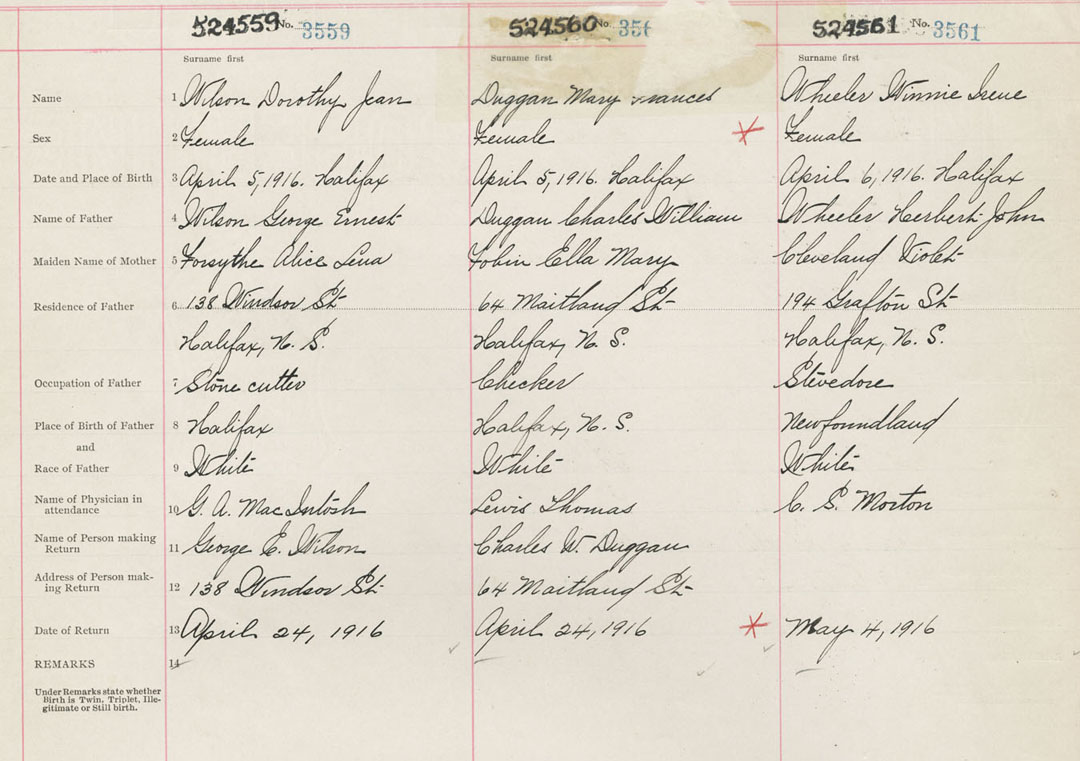 524559 No. 3559 524560 No. 356 524561 No. 3561
Surname first Surname first Surname first
Name 1 Wilson Dorothy Jean Duggan Mary rances Wheeler Winnie Irene
Sex 2 Female Female Female
Date and Place of Birth 3 April 5, 1916. Halifax April 5, 1916. Halifax April 6, 1916. Halifax
Name of Father 4 Wilson George Ernest Duggan Charles William Wheeler Herbert John
Maiden Name of Mother 5 Forsythe Alice Lena Tobin Ella Mary Cleveland Violet
Residence of Father 6 138 Windsor St 64 Maitland St 194 Grafton St
Halifax, N. S. Halifax, N. S. Halifax, N. S.
Occupation of Father 7 Stone cutter Checker Stevedore
Place of Birth of Father 8 Halifax Halifax, N. S. Newfoundland
and
Race of Father 9 White White White
Name of Physician in
attendance 10 G. A. MacIntosh Lewis Thomas C. S. Morton
Name of Person making
Return 11 George E. Wilson Charles W. Duggan
Address of Person mak-
ing Return 12 138 Windsor St 64 Maitland St
Date of Return 13 April 24, 1916 April 24, 1916 May 4, 1916
REMARKS 14
Under Remarks state whether
Birth is Twin, Triplet, Ille-
gitimate or Still birth.